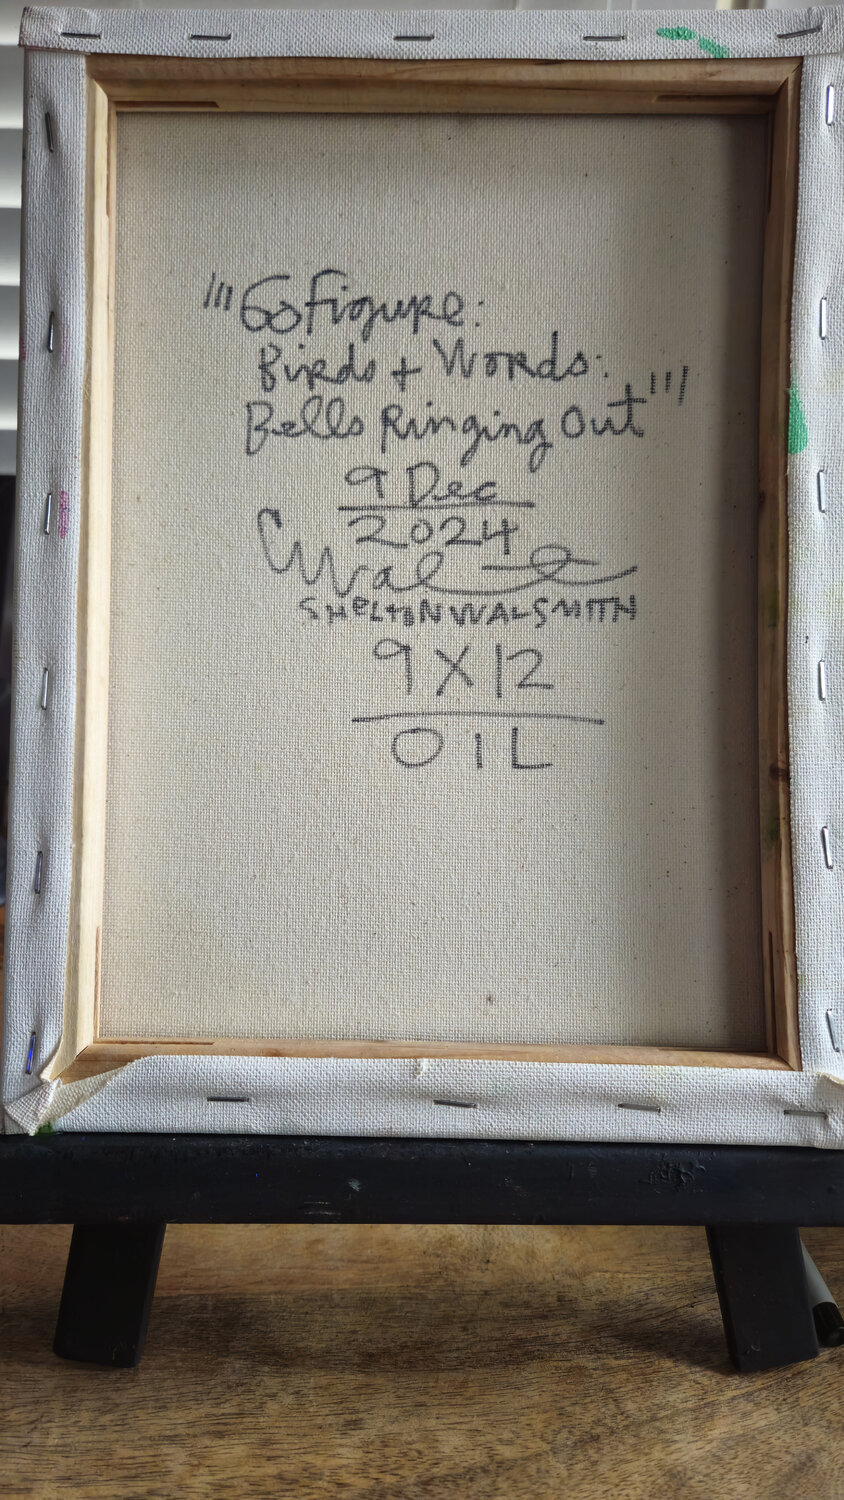 "'Go Figure:
Birds + Words:
Bells Ringing Out'"
9 Dec
2024
SHELTON WALSMITH
9 X 12
OIL